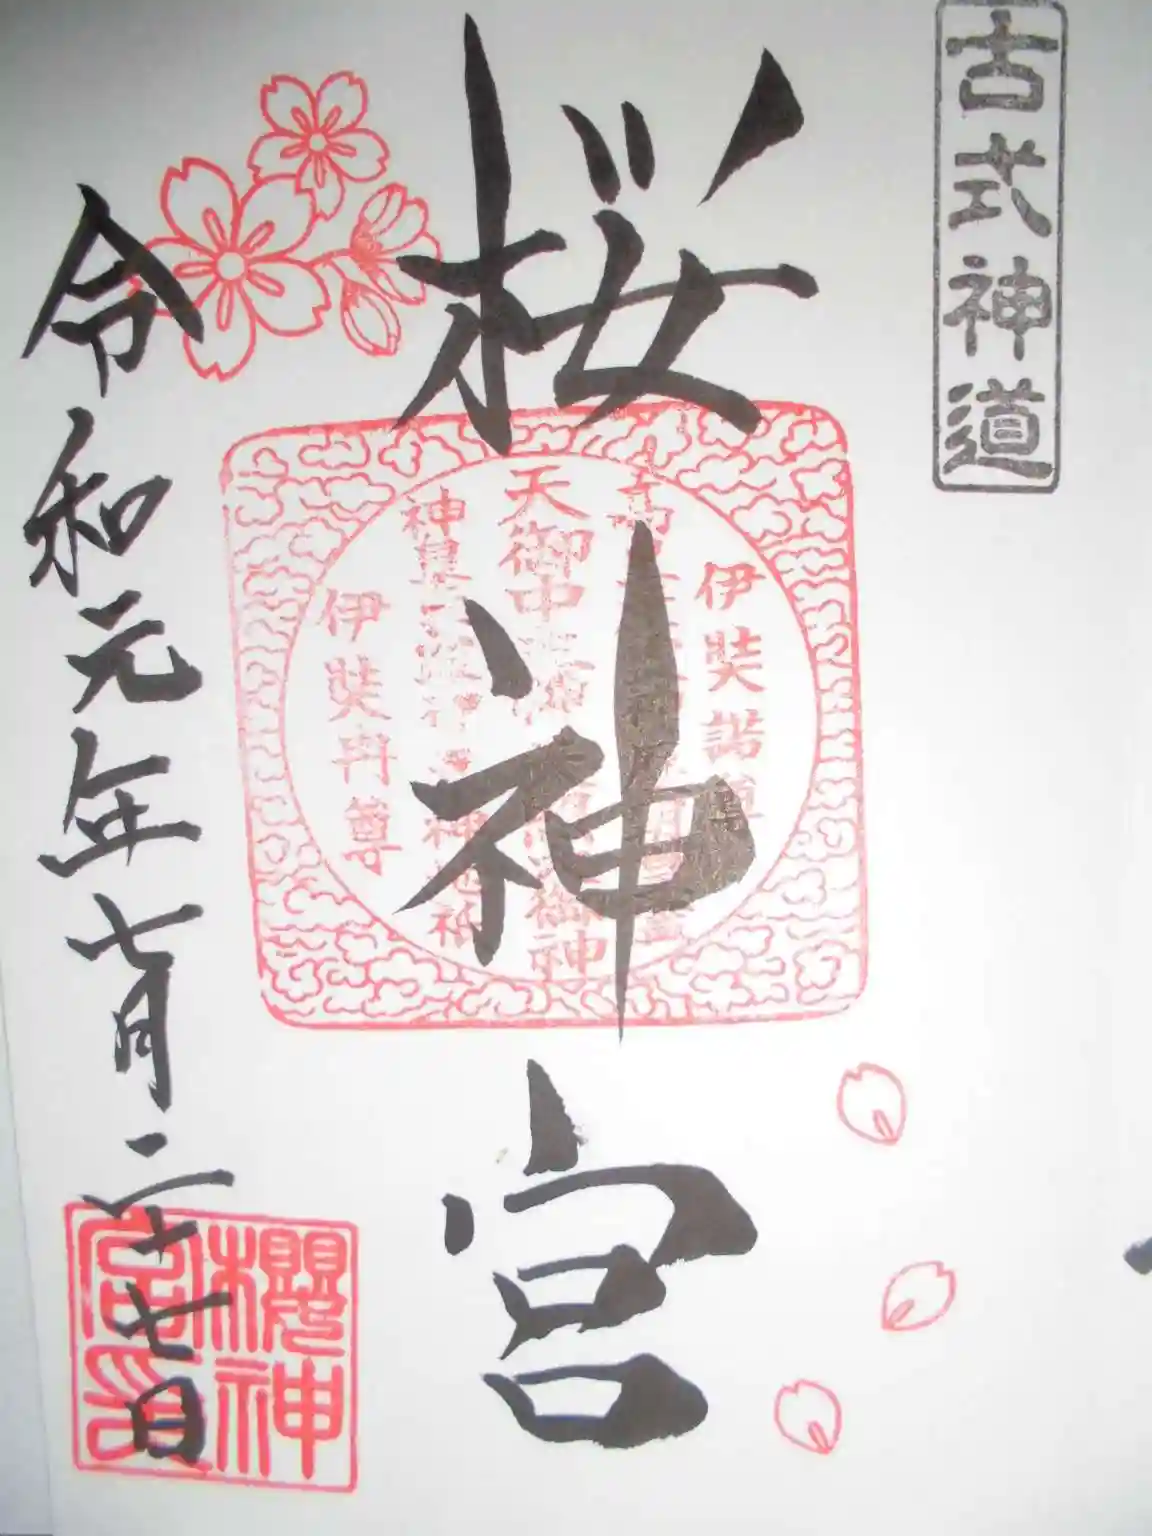 古式神道
桜神宮
伊奘諾尊
天御中
伊奘冉尊
令和元年七月二十七日
櫻神
宮印